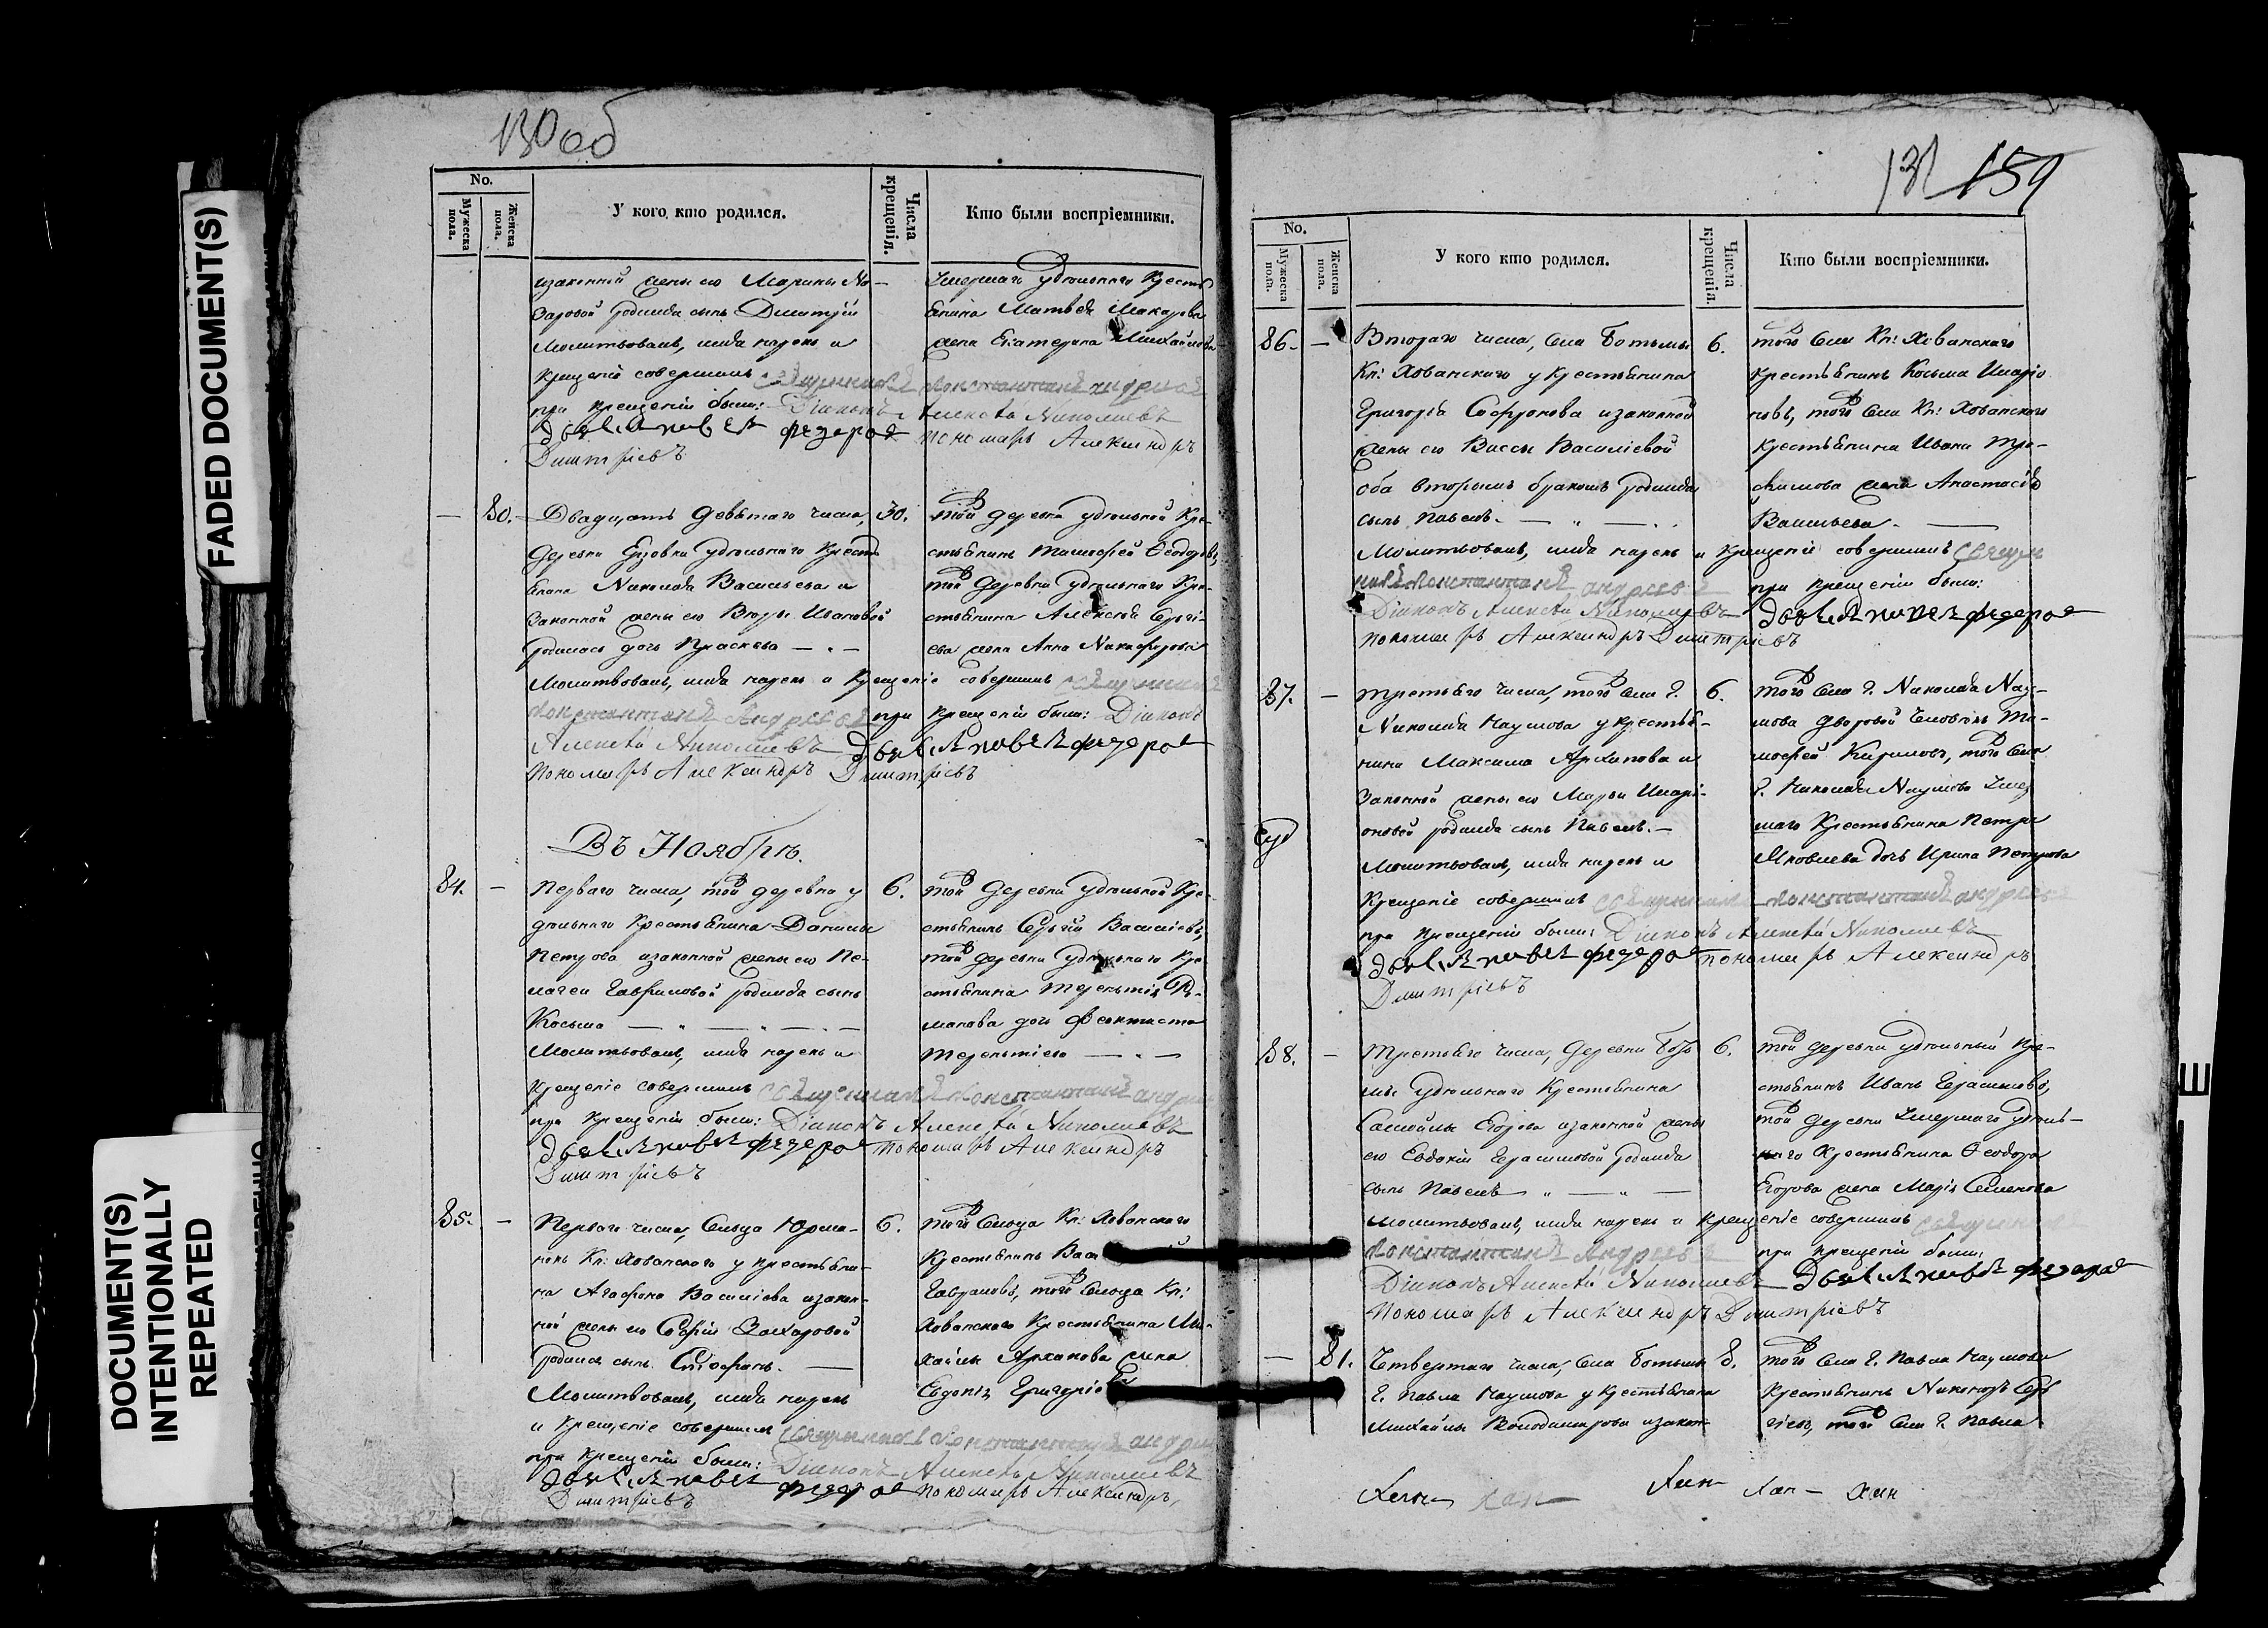 FADED DOCUMENT(S)
DOCUMENT(S)
INTENTIONALLY
REPEATED
130 об
No.
Мужеска пола.
Женска пола.
У кого кто родился.
Числа крещенія.
Кто были воспріемники.
изаконной жены его Марины На-
заровой родился сынъ Дмитрій
Молитвовалъ, имя нарекъ и
крещеніе совершилъ священникъ Константинъ Андреевъ
при крещеніи были: Діаконъ Алексѣй Николаевъ
пономарь Александръ
Дмитріевъ
Умершаго удѣльнаго крестья
янина Матвѣя Макарова
жена Екатерина Михайлова
80.
Двадцать девятаго числа,
30.
удѣльнаго крестья
янина Николая Васильева и
законной жены его Вѣры Ивановой
родилась дочь Праскева
той деревни удѣльной кре-
стьянинъ Тимофей Ѳеодоровъ,
той деревни удѣльнаго кре-
стьянина Алексѣя Сергі-
ева жена Анна Никифорова
Молитвовалъ, имя нарекъ и крещеніе совершилъ священникъ
Константинъ Андреевъ при крещеніи были: Діаконъ
Алексѣй Николаевъ
пономарь Александръ Дмитріевъ
Въ Ноябрѣ.
84.
Перваго числа, той деревни у
дѣльнаго крестьянина Данилы
Петрова изаконной жены его Пе-
лагеи Гавриловой родился сынъ
Косьма
6.
той деревни удѣльной кре-
стьянинъ Сергѣй Василіевъ,
той деревни удѣльнаго кре
стьянина Терентія Ро-
манова дочь Феоктиста
Терентіева
Молитвовалъ, имя нарекъ и
крещеніе совершилъ священникъ Константинъ Андреевъ
при крещеніи были: Діаконъ Алексѣй Николаевъ
пономарь Александръ
Дмитріевъ
85.
Перваго числа, Сельца
Кн: Хованскаго у крестьяни-
на Агафона Василіева изакон-
ной жены его Софіи Захаровой
родился сынъ Стефанъ.
6.
того Сельца Кн: Хованскаго
Крестьянинъ
Гавриловъ, того Сельца Кн:
Хованскаго Крестьянина Ми-
хайлы Архипова жена
Евдокія
Молитвовалъ, имя нарекъ
и крещеніе совершилъ священникъ Константинъ Андреевъ
при крещеніи были: Діаконъ Алексѣй Николаевъ
пономарь Александръ
Дмитріевъ
131 159
No.
Мужеска пола.
Женска пола.
У кого кто родился.
Числа крещенія.
Кто были воспріемники.
86.
Втораго числа, села Ботьмы
Кн: Хованскаго у крестьянина
Григорія Софронова изаконной
жены его Вассы Василіевой
оба вторымъ бракомъ родился
сынъ Павелъ.
6.
того села Кн: Хованскаго
крестьянинъ Косьма Иларіо
новъ, того села Кн: Хованскаго
крестьянина Ивана Тро-
фимова жена Анастасія
Васильева.
Молитвовалъ, имя нарекъ и крещеніе совершилъ священ
никъ Константинъ Андреевъ при крещеніи были:
Діаконъ Алексѣй Николаевъ
пономарь Александръ Дмитріевъ
87.
третьяго числа, того села г.
Николая Наумова у крестья-
нина Максима Архипова и
законной жены его Марьи Илари-
оновой родился сынъ Павелъ.
6.
того села г. Николая Нау-
мова дворовой человѣкъ Ти-
мофей Кириловъ, того села
г. Николая Наумова умер
шаго крестьянина Петра
Яковлева дочь Ирина Петрова
Молитвовалъ, имя нарекъ и
крещеніе совершилъ священникъ Константинъ Андреевъ
при крещеніи были: Діаконъ Алексѣй Николаевъ
пономарь Александръ
Дмитріевъ
88.
третьяго числа, деревни Боть
мы удѣльнаго крестьянина
Самойлы Егорова изаконной жены
его Евдокіи Герасимовой родился
сынъ Павелъ
6.
той деревни удѣльный кре-
стьянинъ Иванъ Герасимовъ,
той деревни умершаго удѣль-
наго крестьянина Ѳеодора
Егорова жена Марія Семенова
молитвовалъ, имя нарекъ и крещеніе совершилъ священникъ
Константинъ Андреевъ при крещеніи были:
Діаконъ Алексѣй Николаевъ
пономарь Александръ Дмитріевъ
81.
Четвертаго числа, села Ботьмы
г. Павла Наумова у крестьянина
Михайлы Володимирова изакон-
8.
того села г. Павла Наумова
крестьянинъ Никаноръ Сер
гіевъ, того села г. Павла